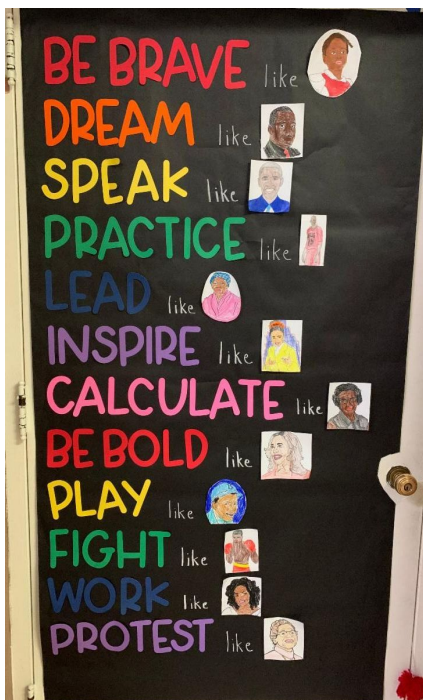 BE BRAVE like
DREAM like
SPEAK like
PRACTICE like
LEAD like
INSPIRE like
CALCULATE like
BE BOLD like
PLAY like
FIGHT like
WORK like
PROTEST like